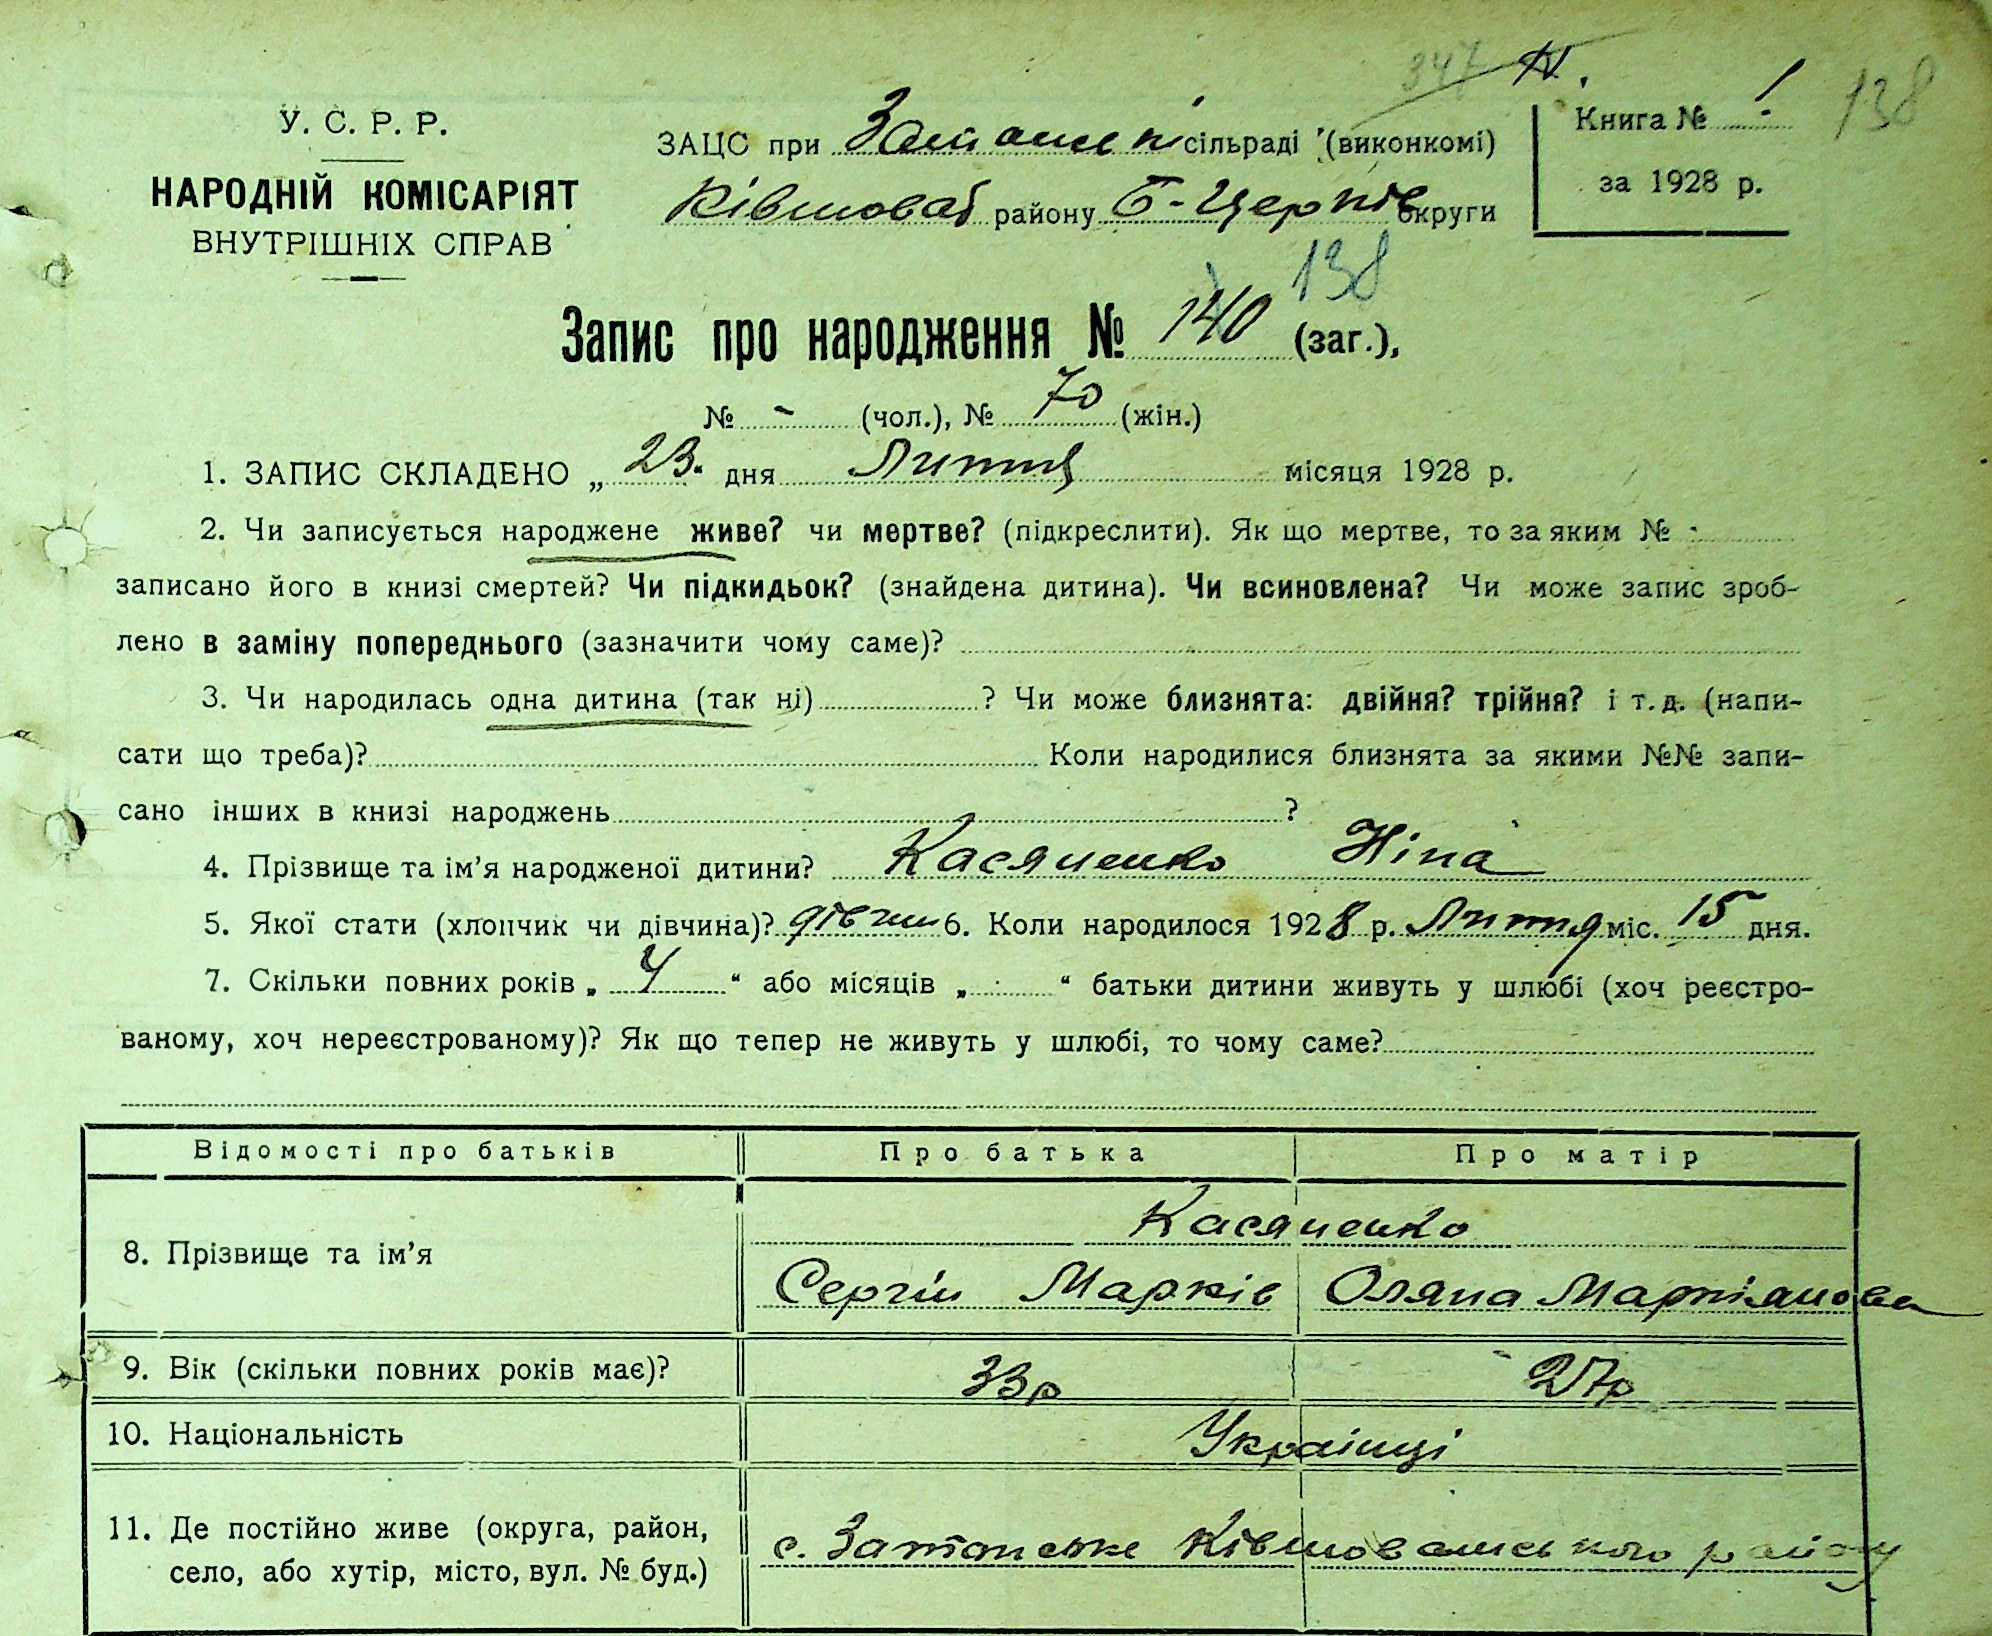 347 N.
У. С. Р. Р.
НАРОДНІЙ КОМІСАРІЯТ
ВНУТРІШНІХ СПРАВ
ЗАЦС при сільраді (виконкомі)
Ківшоват району Б-Церків округи
Книга № 1
за 1928 р.
138
138
Запис про народження № 140 (заг.),
№ - (чол.), № 70 (жін.)
1. ЗАПИС СКЛАДЕНО „ 23 " дня Лютня місяця 1928 р.
2. Чи записується народжене живе? чи мертве? (підкреслити). Як що мертве, то за яким № -
записано його в книзі смертей? Чи підкидьок? (знайдена дитина). Чи всиновлена? Чи може запис зроб-
лено в заміну попереднього (зазначити чому саме)?
3. Чи народилась одна дитина (так ні) ? Чи може близнята: двійня? трійня? і т. д. (напи-
сати що треба)? Коли народилися близнята за якими №№ запи-
сано інших в книзі народжень ?
4. Прізвище та ім'я народженої дитини? Касяненко Ніна
5. Якої стати (хлопчик чи дівчина)? дівчин 6. Коли народилося 1928 р. Лютня міс. 15 дня.
7. Скільки повних років „ 4 " або місяців „ - " батьки дитини живуть у шлюбі (хоч реєстро-
ваному, хоч нереєстрованому)? Як що тепер не живуть у шлюбі, то чому саме?
Відомості про батьків Про батька Про матір
8. Прізвище та ім'я Касяненко
Сергій Марків Оляна Мартіянова
9. Вік (скільки повних років має)? 33р 27р
10. Національність Українці
11. Де постійно живе (округа, район,
село, або хутір, місто, вул. № буд.) с. Ківшоватського району